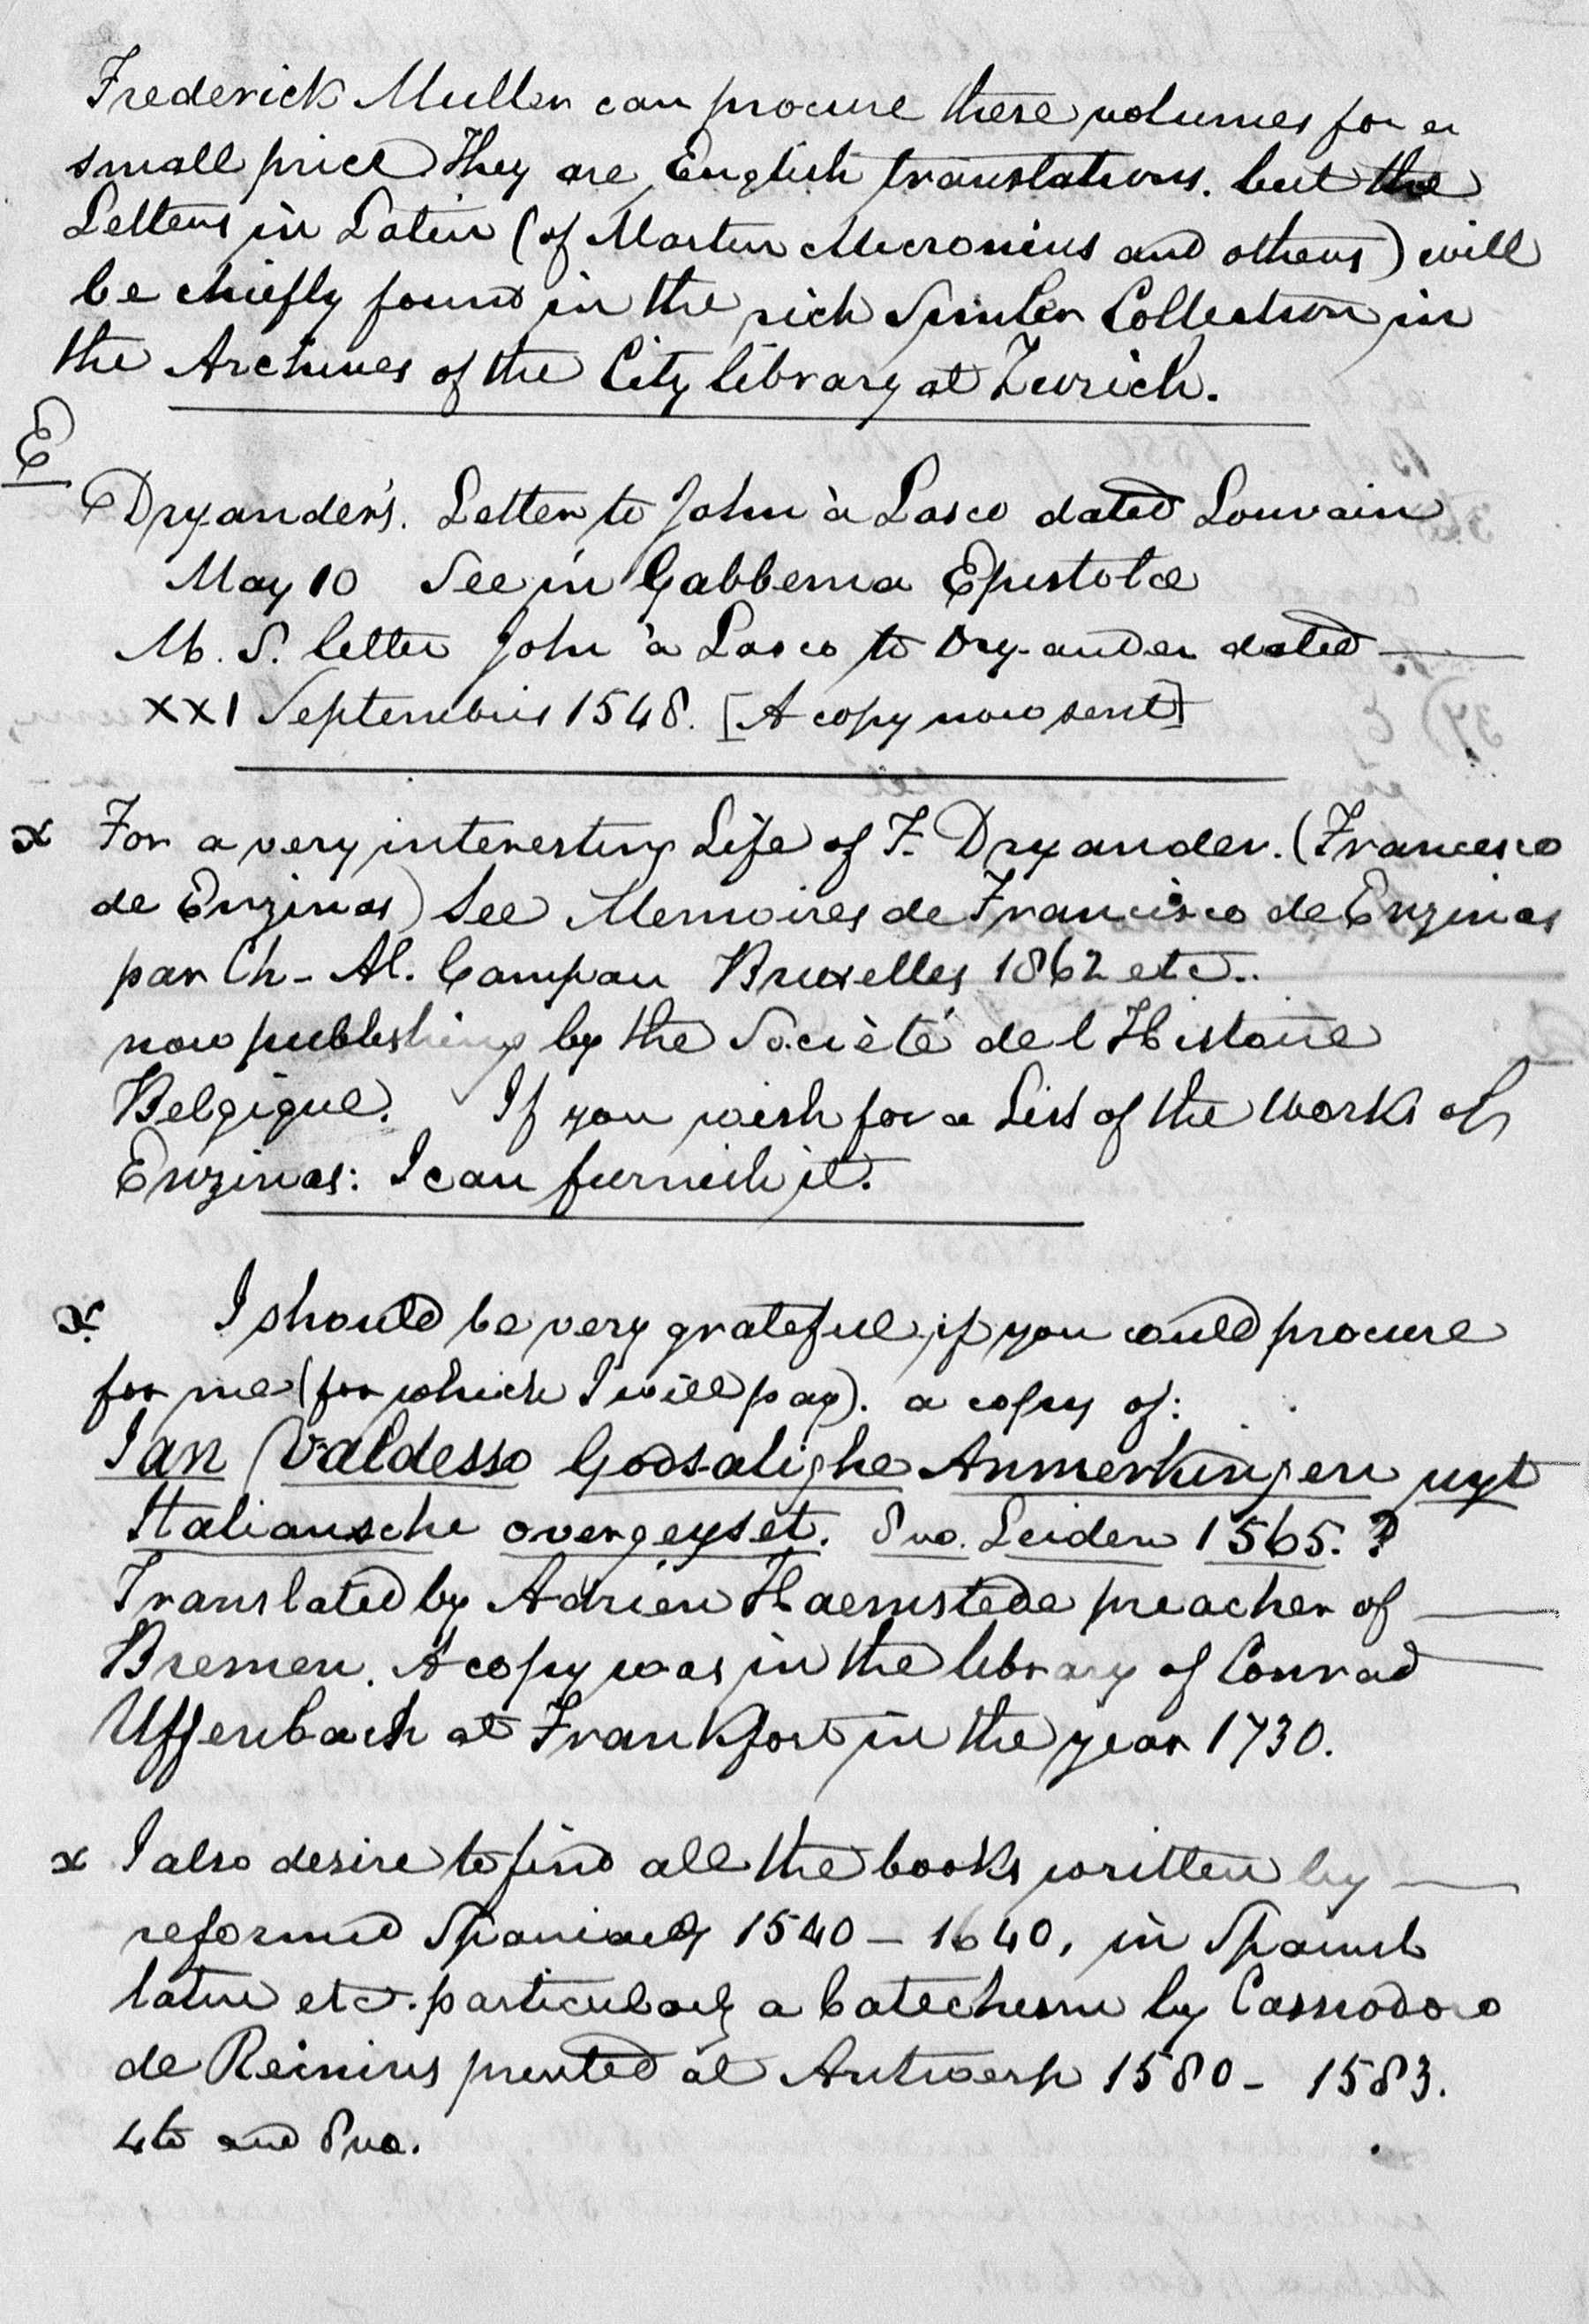 Frederick Muller can procure these volumes for a
small price They are English translations. but the
Letters in Latin (of Martin Micronius and others) will
be chiefly found in the rich Simler Collection in
the Archives of the City library at Zurich.
E
Dryander's. Letter to John à Lasco dated Louvain
May 10 See in Gabbema Epistolæ
M. S. letter John à Lasco to Dryander dated —
XXI Septembris 1548. [A copy now sent]
x For a very interesting Life of F. Dryander. (Francesco
de Enzinas) See Memoires de Francisco de Enzinas
par Ch- Al. Campan Bruxelles 1862 etc..
now publishing by the Société de l Histoire
Belgique. If you wish for a List of the works of
Enzinas: I can furnish it.
x. I should be very grateful if you could procure
for me (for which I will pay). a copy of:
Ian Valdesso Godsalighe Anmerkingen uyt
Italiansche overgeyset. 8vo. Leiden 1565. ?
Translated by Adrien Haemstede preacher of —
Bremen. A copy was in the library of Conrad —
Uffenbach at Frankfort in the year 1730.
x I also desire to find all the books written by —
reformed Spaniards 1540 – 1640, in Spanish
latin etc. particularly a Catechism by Cassiodoro
de Reinius printed at Antwerp 1580 – 1583.
4to and 8vo.